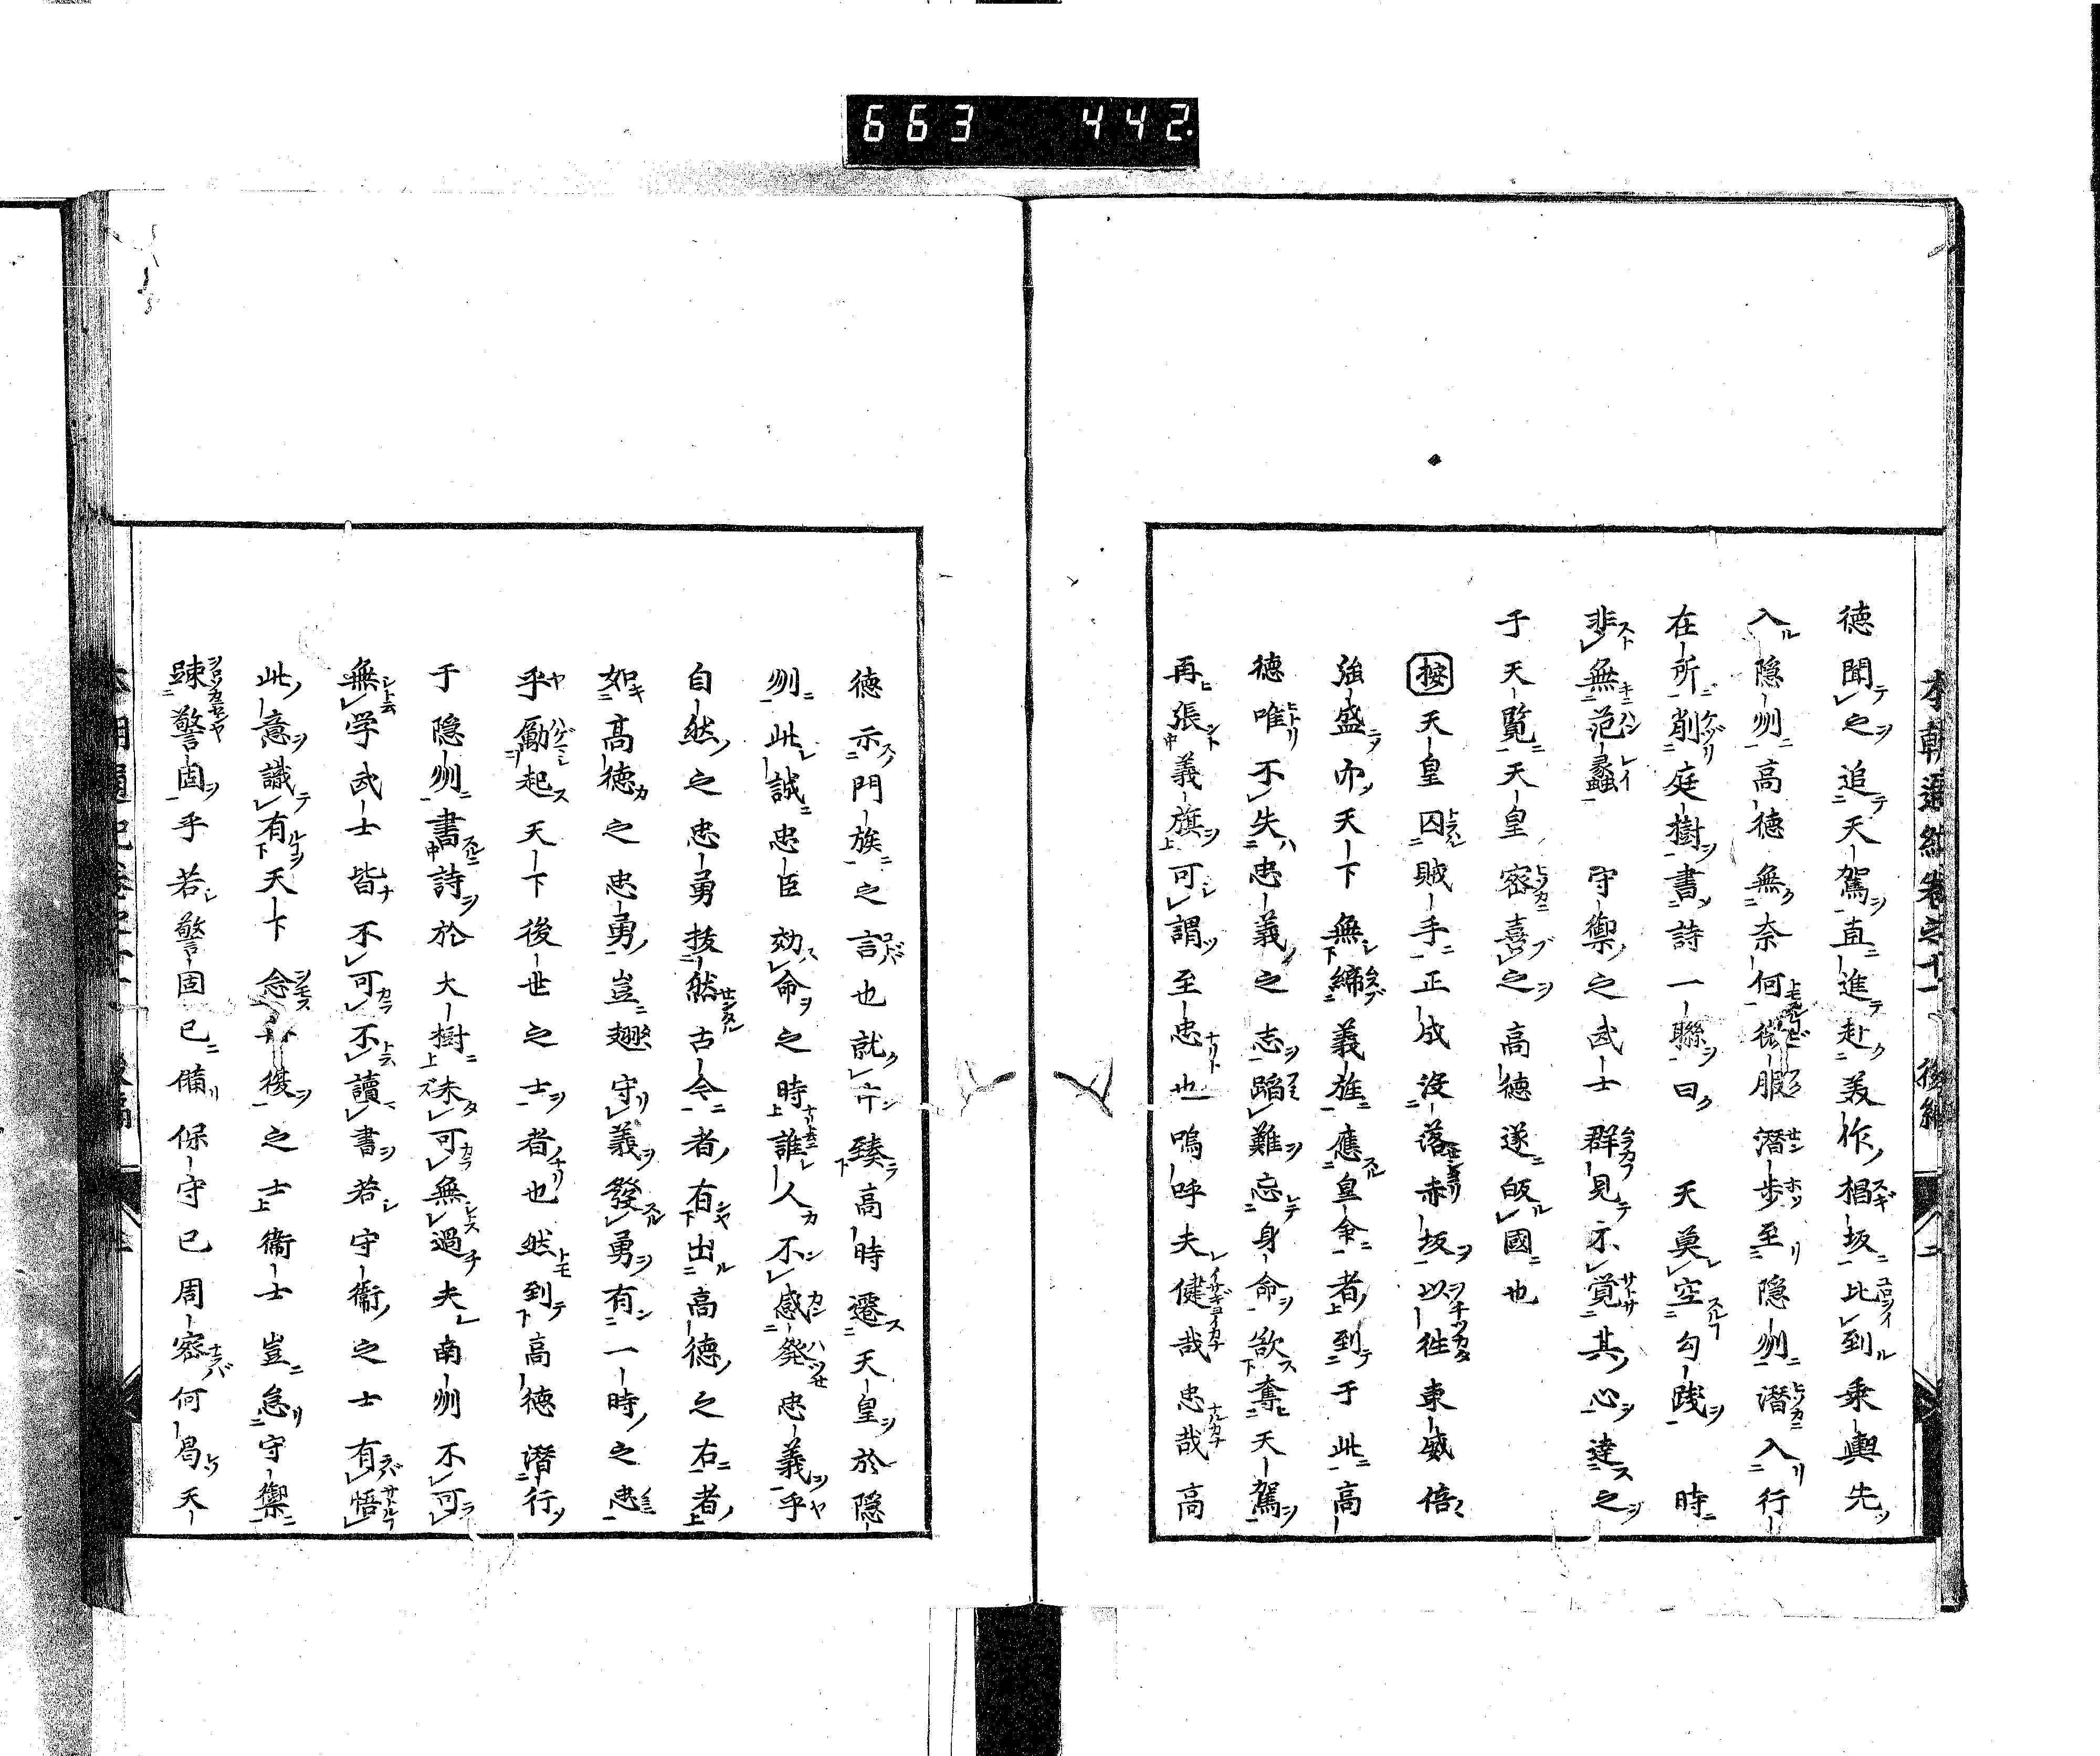 663 442.
本朝通紀卷之十一 後編 二
德聞之追天駕直進赴美作榲坂比到乘輿先
入隱州高德無奈何微服潛步至隱州潛入行
在所削庭樹書詩一聯曰 天莫空勾踐 時
非無范蠡 守禦之武士群見示覺其心達之
于天覽天皇密喜之高德遂皈國也
按天皇囚賊手正成沒落赤坂以徃東威倍
強盛而天下無締義旌應皇命者到于此高
德唯不失忠義之志蹈難忘身命欲奪天駕
再張義旗可謂至忠也嗚呼夫健哉忠哉高
德示門族之言也就中臻高時遷天皇於隱
州此誠忠臣効命之時誰人不感発忠義乎
自然之忠勇拔然古今者有出高德之右者
如高德之忠勇豈翅守義發勇有一時之忠
乎勵起天下後世之士者也然到高德潛行
于隱州書詩於大樹未可無過夫南州不可
無学武士皆不可不讀書若守衞之士有悟
此意識有天下念後之士衞士豈怠守禦
踈警固乎若警固已備保守已周密何曷天